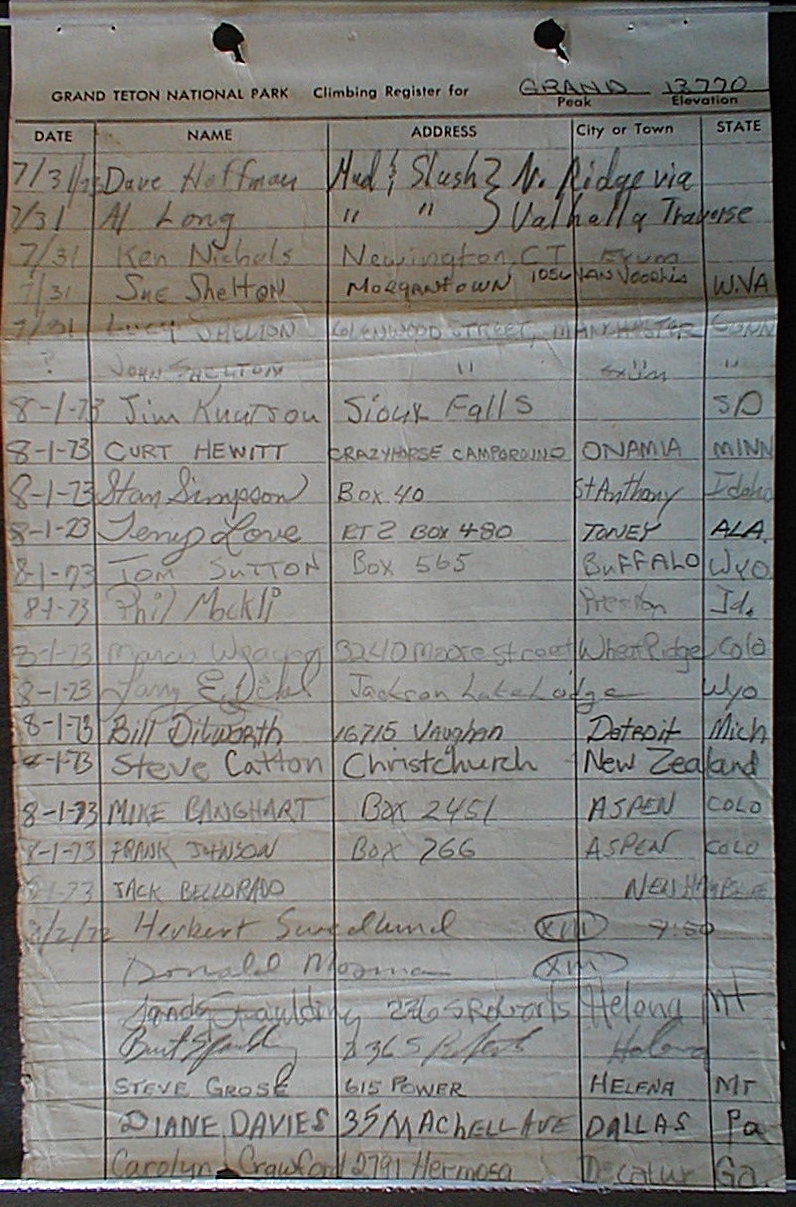 GRAND TETON NATIONAL PARK Climbing Register for GRAND 13,770
Peak Elevation
DATE NAME ADDRESS City or Town STATE
7/31/73 Dave Hoffman Mud & Slush } N. Ridge via
7/31 Al Long " " } Valhalla Traverse
7/31 Ken Nichols Newington, CT Exum
7/31 Sue Shelton Morgantown 1056 Van Voorhis W.VA
7/31 Lucy Shelton Glenwood Street, Manchester Conn
? John Shelton " "
8-1-73 Jim Knutson Sioux Falls SD
8-1-73 CURT HEWITT CRAZYHORSE CAMPGROUND ONAMIA MINN
8-1-73 Stan Simpson Box 40 St Anthony Idaho
8-1-73 Terry Love RT 2 BOX 480 TONEY ALA.
8-1-73 TOM SUTTON Box 565 BUFFALO Wyo.
8-1-73 Phil Mockli Preston Id.
8-1-73 3240 Moore street Wheat Ridge Colo
8-1-73 Jackson Lake Lodge Wyo
8-1-73 Bill Dilworth 16715 Vaughan Detroit Mich
8-1-73 Steve Catton Christchurch New Zealand
8-1-73 MIKE BANGHART Box 2451 ASPEN COLO
8-1-73 FRANK JOHNSON BOX 766 ASPEN COLO
8-1-73 JACK BELLORADO NEW HAMPSHIRE
Herbert Swedlund XIII
Donald Mossman XIII
Sandy Spaulding 236 S Roberts Helena Mt
Burt Spaulding 236 S Roberts Helena
STEVE GROSE 615 POWER HELENA MT
DIANE DAVIES 35 MACHELL AVE DALLAS Pa
Carolyn Crawford 2791 Hermosa Decatur Ga.